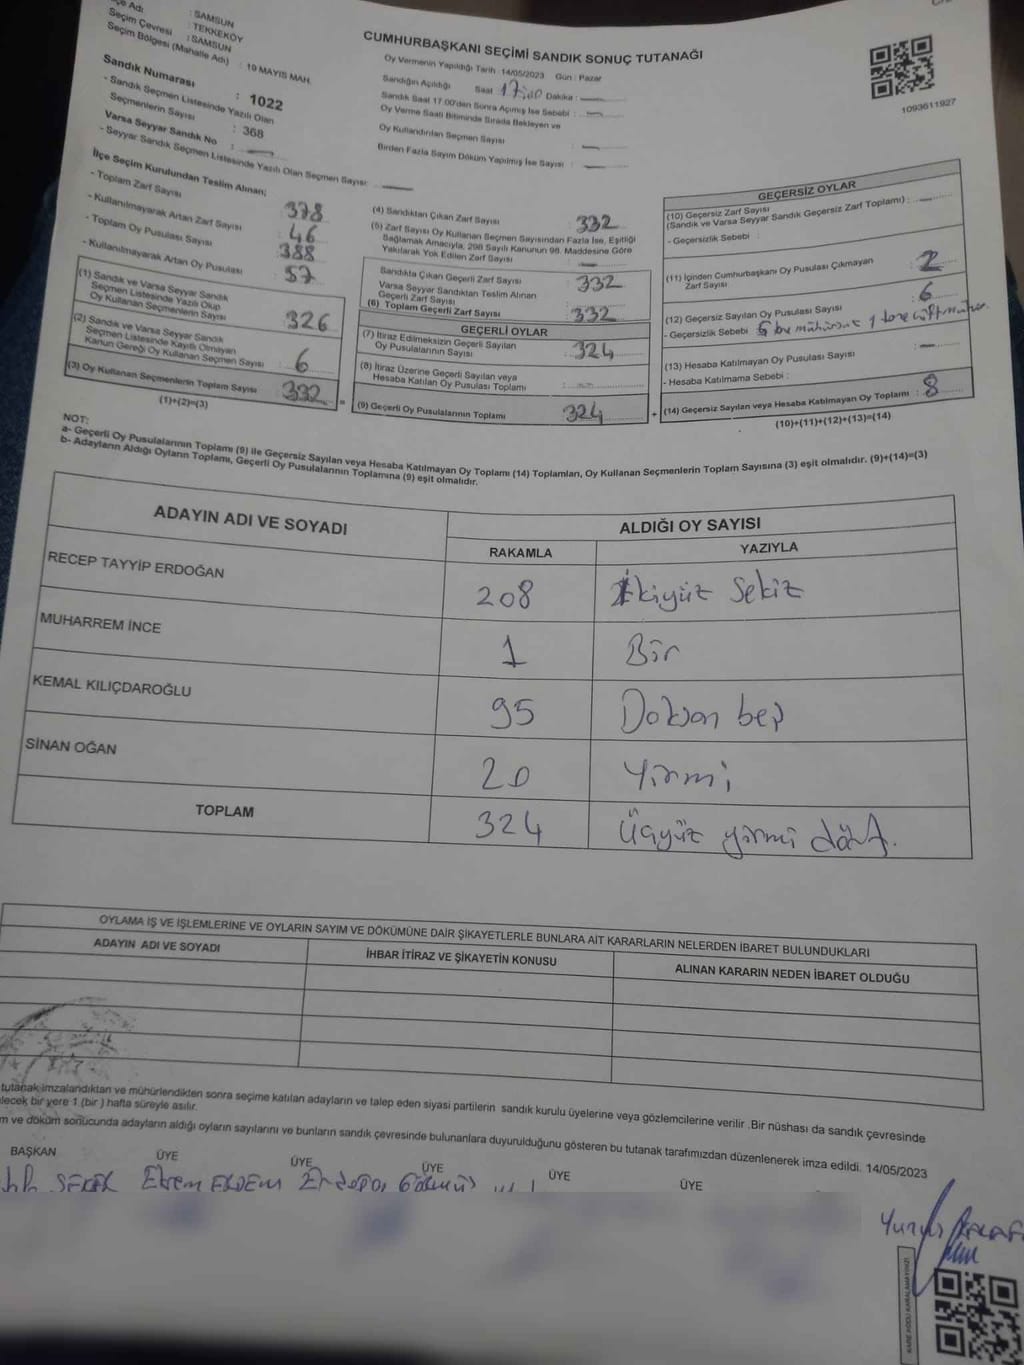 : SAMSUN
: TEKKEKÖY
Seçim Çevresi : SAMSUN
Seçim Bölgesi (Mahalle Adı) : 19 MAYIS MAH.
Sandık Numarası : 1022
- Sandık Seçmen Listesinde Yazılı Olan
Seçmenlerin Sayısı : 368
Varsa Seyyar Sandık No :
- Seyyar Sandık Seçmen Listesinde Yazılı Olan Seçmen Sayısı :
CUMHURBAŞKANI SEÇİMİ SANDIK SONUÇ TUTANAĞI
Oy Vermenin Yapıldığı Tarih : 14/05/2023 Gün : Pazar
Sandığın Açıldığı Saat 17:00 Dakika :
Sandık Saat 17.00'den Sonra Açılmış İse Sebebi :
Oy Verme Saati Bitiminde Sırada Bekleyen ve
Oy Kullandırılan Seçmen Sayısı :
Birden Fazla Sayım Döküm Yapılmış İse Sayısı :
1093611927
İlçe Seçim Kurulundan Teslim Alınan;
- Toplam Zarf Sayısı : 378
- Kullanılmayarak Artan Zarf Sayısı : 46
- Toplam Oy Pusulası Sayısı : 388
- Kullanılmayarak Artan Oy Pusulası : 57
(1) Sandık ve Varsa Seyyar Sandık
Seçmen Listesinde Yazılı Olup
Oy Kullanan Seçmenlerin Sayısı : 326
(2) Sandık ve Varsa Seyyar Sandık
Seçmen Listesinde Kayıtlı Olmayan
Kanun Gereği Oy Kullanan Seçmen Sayısı : 6
(3) Oy Kullanan Seçmenlerin Toplam Sayısı : 332
(1)+(2)=(3)
=
(4) Sandıktan Çıkan Zarf Sayısı : 332
(5) Zarf Sayısı Oy Kullanan Seçmen Sayısından Fazla İse, Eşitliği
Sağlamak Amacıyla, 298 Sayılı Kanunun 98. Maddesine Göre
Yakılarak Yok Edilen Zarf Sayısı :
Sandıkta Çıkan Geçerli Zarf Sayısı : 332
Varsa Seyyar Sandıktan Teslim Alınan
Geçerli Zarf Sayısı :
(6) Toplam Geçerli Zarf Sayısı : 332
GEÇERLİ OYLAR
(7) İtiraz Edilmeksizin Geçerli Sayılan
Oy Pusulalarının Sayısı : 324
(8) İtiraz Üzerine Geçerli Sayılan veya
Hesaba Katılan Oy Pusulası Toplamı :
(9) Geçerli Oy Pusulalarının Toplamı : 324
+
GEÇERSİZ OYLAR
(10) Geçersiz Zarf Sayısı
(Sandık ve Varsa Seyyar Sandık Geçersiz Zarf Toplamı) :
- Geçersizlik Sebebi :
(11) İçinden Cumhurbaşkanı Oy Pusulası Çıkmayan
Zarf Sayısı : 2
(12) Geçersiz Sayılan Oy Pusulası Sayısı : 6
- Geçersizlik Sebebi : 5 tne mühürsüz 1 tane çift mühür.
(13) Hesaba Katılmayan Oy Pusulası Sayısı :
- Hesaba Katılmama Sebebi :
(14) Geçersiz Sayılan veya Hesaba Katılmayan Oy Toplamı : 8
(10)+(11)+(12)+(13)=(14)
NOT:
a- Geçerli Oy Pusulalarının Toplamı (9) ile Geçersiz Sayılan veya Hesaba Katılmayan Oy Toplamı (14) Toplamları, Oy Kullanan Seçmenlerin Toplam Sayısına (3) eşit olmalıdır. (9)+(14)=(3)
b- Adayların Aldığı Oyların Toplamı, Geçerli Oy Pusulalarının Toplamına (9) eşit olmalıdır.
ADAYIN ADI VE SOYADI ALDIĞI OY SAYISI
RAKAMLA YAZIYLA
RECEP TAYYİP ERDOĞAN 208 İkiyüz Sekiz
MUHARREM İNCE 1 Bir
KEMAL KILIÇDAROĞLU 95 Doksan beş
SİNAN OĞAN 20 Yirmi
TOPLAM 324 Üçyüz yirmi dört.
OYLAMA İŞ VE İŞLEMLERİNE VE OYLARIN SAYIM VE DÖKÜMÜNE DAİR ŞİKAYETLERLE BUNLARA AİT KARARLARIN NELERDEN İBARET BULUNDUKLARI
ADAYIN ADI VE SOYADI İHBAR İTİRAZ VE ŞİKAYETİN KONUSU ALINAN KARARIN NEDEN İBARET OLDUĞU
tutanak imzalandıktan ve mühürlendikten sonra seçime katılan adayların ve talep eden siyasi partilerin sandık kurulu üyelerine veya gözlemcilerine verilir .Bir nüshası da sandık çevresinde
lecek bir yere 1 (bir ) hafta süreyle asılır.
m ve döküm sonucunda adayların aldığı oyların sayılarını ve bunların sandık çevresinde bulunanlara duyurulduğunu gösteren bu tutanak tarafımızdan düzenlenerek imza edildi. 14/05/2023
BAŞKAN ÜYE ÜYE ÜYE ÜYE ÜYE
Ekrem ERDEM
Yunus
KARE KODU KARALAMAYINIZ!